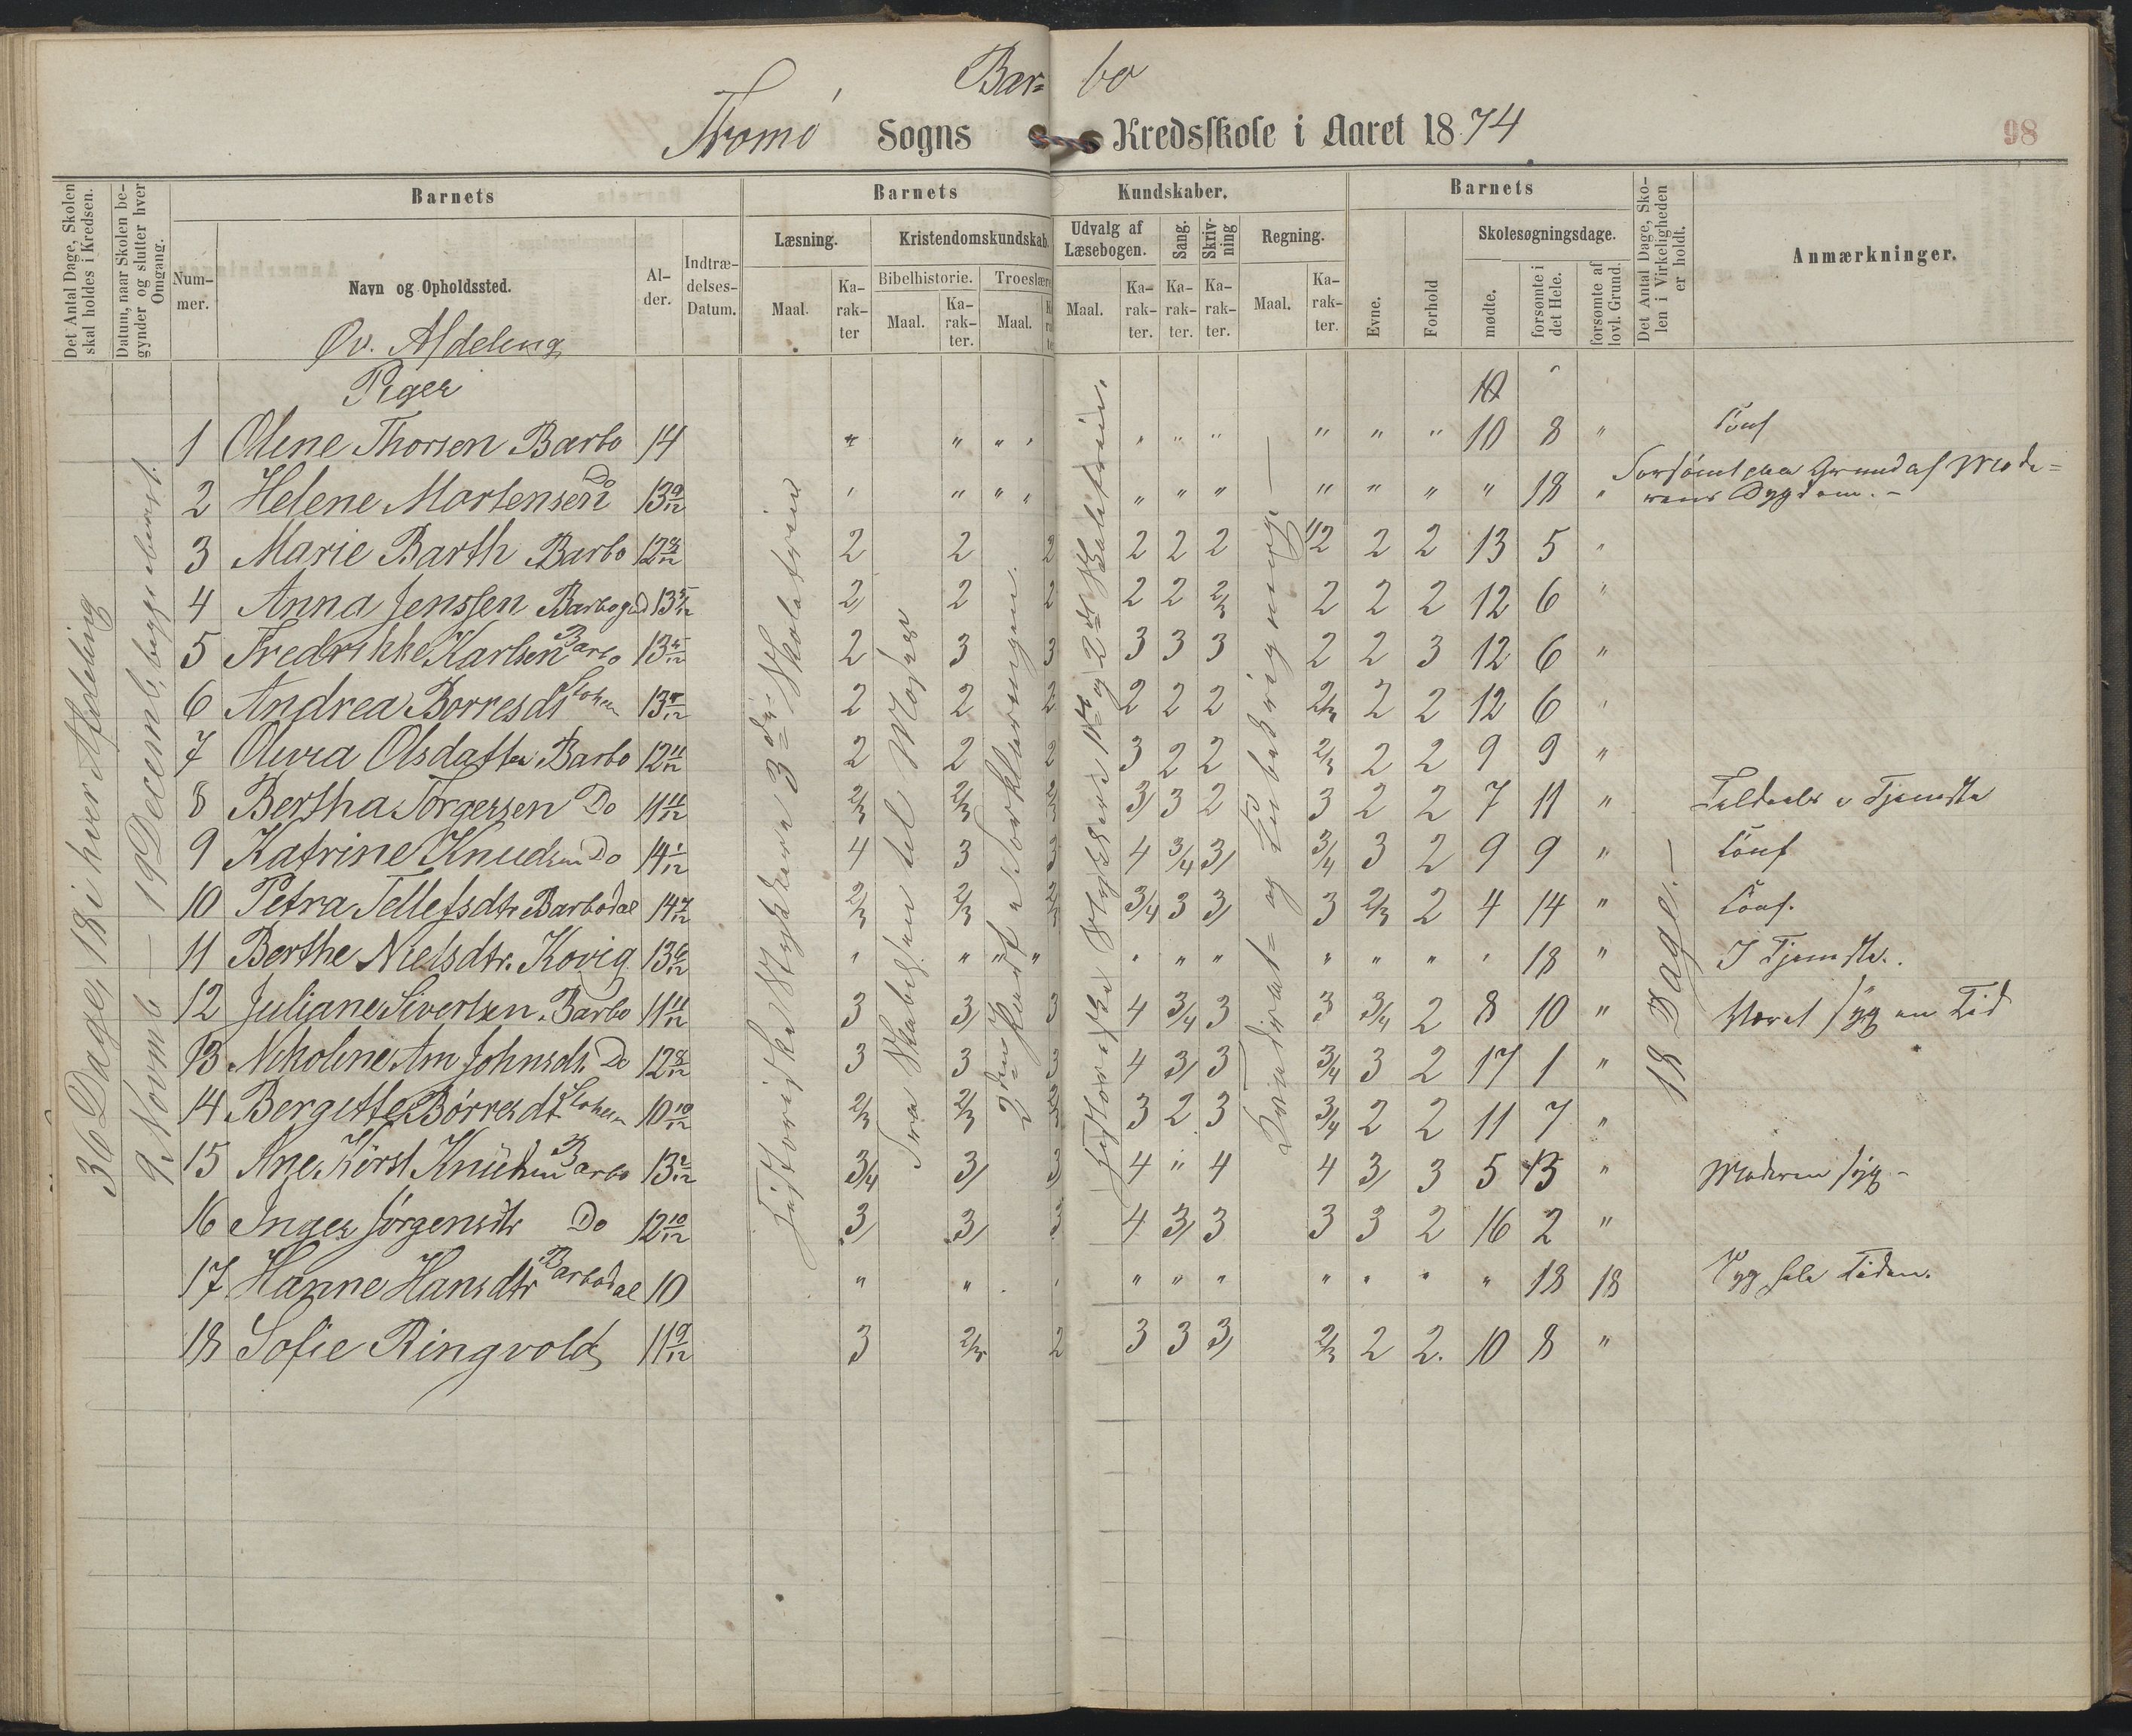 Bar= bo
Tromø Sogns Kredsskole i Aaret 1874
98
Det Antal Dage, Skolen skal holdes i Kredsen.
Datum, naar Skolen begynder og slutter hver Omgang.
Barnets
Barnets Kundskaber.
Barnets
Det Antal Dage, Skolen i Virkeligheden er holdt.
Anmærkninger.
Nummer.
Navn og Opholdssted.
Alder.
Indtrædelses-Datum.
Læsning.
Kristendomskundskab.
Udvalg af Læsebogen.
Sang.
Skrivning
Regning.
Evne.
Forhold
Skolesøgningsdage.
Bibelhistorie.
Troeslære
Maal. Karakter Maal. Karakter. Maal. Maal. Karakter. Karakter. Karakter. Maal. Karakter.
mødte. forsømte i det Hele. forsømte af lovl. Grund.
Øv. Afdeling
Piger
36 Dage, 18 i hver Afdeling
9 Novmb — 19 Decemb.
3die Skoletrin
Fra Skabelsen til Moses
2den Part Forklaringen.
1ste og 2det Skoletrin.
18 Dage. —
1 Oline Thorsen Barbo 14 " " " " " " " " " " 10 8 "
2 Helene Martensen Do 13 9/12 " " " " " " " " " " " 18 " Forsømt paa Grund af Mode=
rens Sygdom. -
3 Marie Barth Barbo 12 8/12 2 2 2 2 2 2 1/2 2 2 13 5 "
4 Anna Jenssen Barbogd 13 5/12 2 2 2 2 2 2/3 2 2 2 12 6 "
5 Fredrikke Karlsen Barbo 13 5/12 2 3 3 3 3 3 2 2 3 12 6 "
6 Andrea Borresdt 13 8/12 2 2 2 2 2 2 2/3 2 2 12 6 "
7 Olivia Olsdatter Barbo 12 11/12 2 2 2 3 2 2 2/3 2 2 9 9 "
8 Bertha Torgersen Do 11 11/12 2/3 2/3 2/3 3 3 2 3 2 2 7 11 "
9 Katrine Knudsen Do 14 1/12 4 3 3 4 3/4 3 3/4 3 2 9 9 "
10 Petra Tellefsdtr Barbodal 14 7/12 2/3 2/3 2/3 3/4 3 3 3 2/3 2 4 14 "
11 Berthe Nielsdtr. Kovig 13 6/12 " " " " " " " " " " " 18 " I Tjeneste.
12 Juliane Sivertsen. Barbo 11 11/12 3 3 3 4 3/4 3 3 3/4 2 8 10 " Været syg en Tid
13 Nikoline Am Johnsdt. Do 12 8/12 3 3 3 4 3 3 3/4 3 2 17 1 "
14 Bergitte Børresdt 10 10/12 2/3 2/3 3 3 2 3 3/4 2 2 11 7 "
15 Ane Kirst Knudsen Barbo 13 2/12 3/4 3 3 4 " 4 4 3 3 5 13 " Moderen syg -
16 Inger Jørgensdtr Do 12 10/12 3 3 3 4 3 3 3 3 2 16 2 "
17 Hanne Hansdtr Barbodal 10 " " " " " " " " " " 18 18 Syg hele Tiden.
18 Sofie Ringvold 11 9/12 3 2/3 2 3 3 3 2/3 2 2. 10 8 "